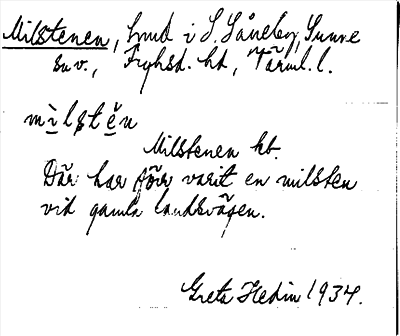 Milstenen, hmd i S. Såneby, Sunne
sn v., Fryksd. hd, Värml. l.
mìlstěn
Milstenen kt.
Där har förr varit en milsten
vid gamla landsvägen.
Greta Hedin 1934.